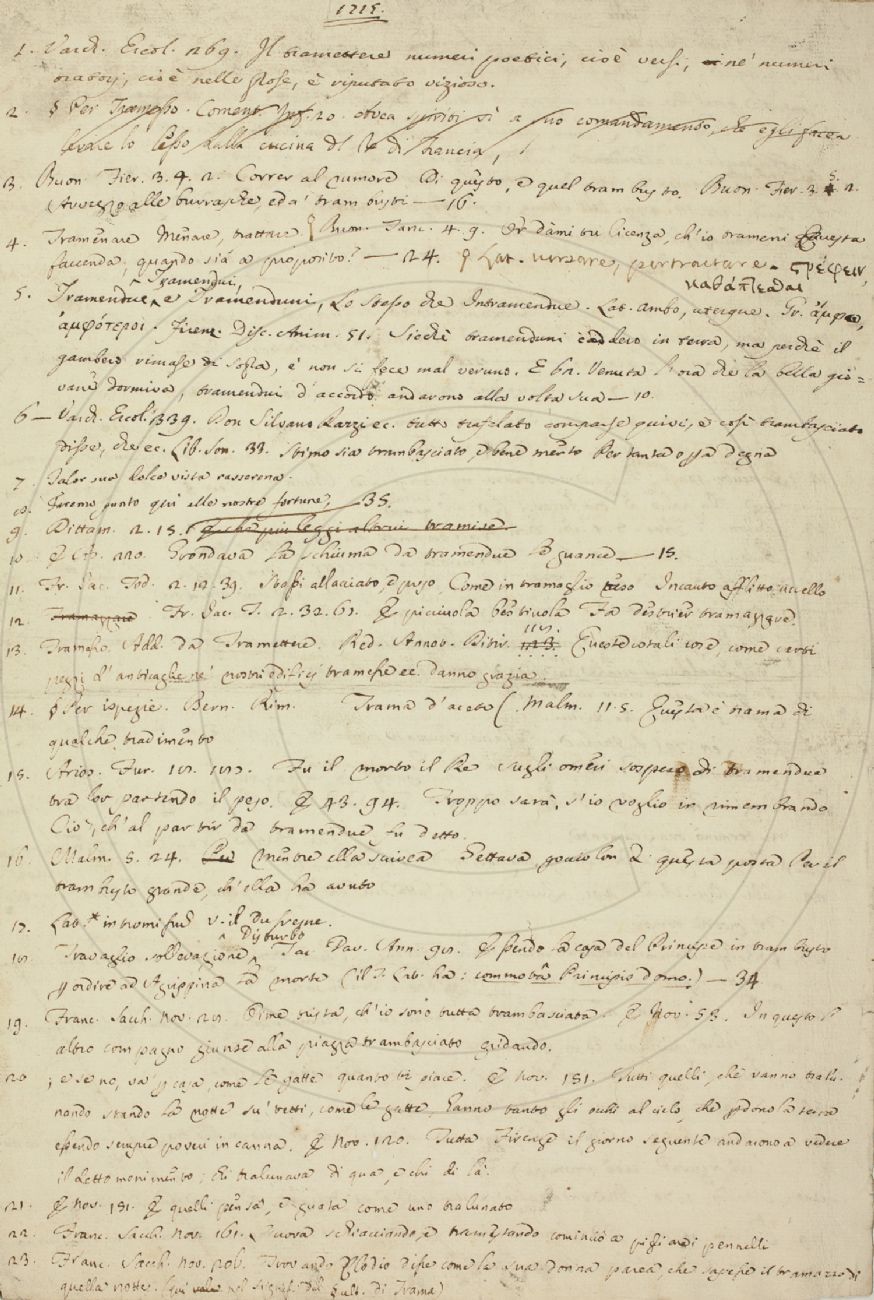 1215.
1. Varch. Ercol. 269. Il tramettere numeri poetici, cioè versi, ne' numeri
oratorj, cioè nelle prose, è riputato vizioso.
2. § Per Tramesso. Coment. Inf. 20. Avea spiriti sì a suo comandamento, che egli facea
levare lo lesso dalla cucina del Re di Francia,
3. Buon. Fier. 3. 4. 2. Correr al rumore Di questo, e quel trambusto. Buon. Fier. 3. 5. 2.
Avvezzo alle burrasche, ed a' trambusti — 16.
4. Tramenare Menare, trattare § Buon. Tanc. 4. 9. Or dammi tu licenza, ch'io trameni Questa
faccenda, quando sia a proposito? — 24. § Lat. versare, pertractare. στρέφειν,
Tramendui,
5. Tramendue, e Tramenduni, Lo stesso che Intramendue. Lat. ambo, uterque. Gr. ἄμφω,
ἀμφότεροι. Firenz. Disc. Anim. 51. Sicchè tramenduni caddero in terra, ma perchè il
gambero rimase di sopra, e non si fece mal veruno. E 62. Venuta l'ora che la bella gio=
vane dormiva, tramendui d'accordo andarono alla volta sua — 10.
6 — Varch. Ercol. 339. Don Silvano Razzi ec. tutto trafelato comparse quivi, e così trambasciato
disse, che ec. Lib. Son. 33. Stimo sia trambasciato, e bene merto Per tanta ossa degna
7. Talor sue dolce vista rasserena.
8. Facemo punto qui alle nostre fortune, — 35.
9. Dittam. 2. 15. e che più leggi altrui tramise
10. E Cap. 220. Grondava la schiuma da tramendue le guance — 15.
11. Fr. Jac. Tod. 2. 19. 39. Stassi allacciato, e preso, Come in tramaglio teso Incauto afflitto uccello
12. Tramazzare Fr. Jac. T. 2. 32. 61. E picciuola bestiuola Fa destrier tramazzare.
13. Tramesso. Add. da Tramettere. Red. Annot. Ditir. 118. 123. Queste cotali cose, come certi
pezzi d'anticaglie ne' nostri edifizj tramesse ec. danno grazia
14. § Per ispezie. Bern. Rim. Trama d'aceto (. Malm. 11. 5. Questa è trama di
qualche tradimento
15. Arios. Fur. 18. Fu il morto il Re sugli omeri sospeso di tramendue
tra lor partendo il peso. E 43. 94. Troppo sarà, s'io voglio ir rimembrando
Ciò, ch'al partir da tramendue fu detto.
16. Malm. 5. 24. Mentre ella sciocca Gettava, gocciolon di questa posta Per il
trambusto grande, ch'ella ha avuto
17. Lat. * intromissus v. il Du fresne.
Disturbo
18. Travaglio sollevazione, Tac. Dav. Ann. Essendo la casa del Principe in trambusto
p ordire ad Agrippina la morte (il T. Lat. ha: commota Principis domo.) — 34
19. Franc. Sacch. nov. 28. Oime trista, ch'io sono tutta trambasciata. E nov. 53. In questo l'
altro compagno giunse alla piazza trambasciato gridando.
20 ; e se no, va p casa, come le gatte quanto ti piace. E nov. 151. Tutti quelli, che vanno tralu-
nando stando la notte su' tetti, come le gatte, hanno tanto gli occhi al cielo, che pdono la terra
essendo sempre poveri in canna. E nov. 120. Tutta Firenze il giorno seguente andarono a vedere
il detto monimento; chi tralunava di qua, e chi di là.
21. E nov. 151. E quelli pensa, e guata come uno tralunato
22. Franc. Sacch. nov. 161. L'uova schiacciando, e tramestando cominciò a pigliare i pennelli
23. Franc. Sacch. nov. 206. Trovando disse come la sua donna parea che sapesse il tramazzo di
quella notte. (qui vale nel signif. del § ult. di Trama)